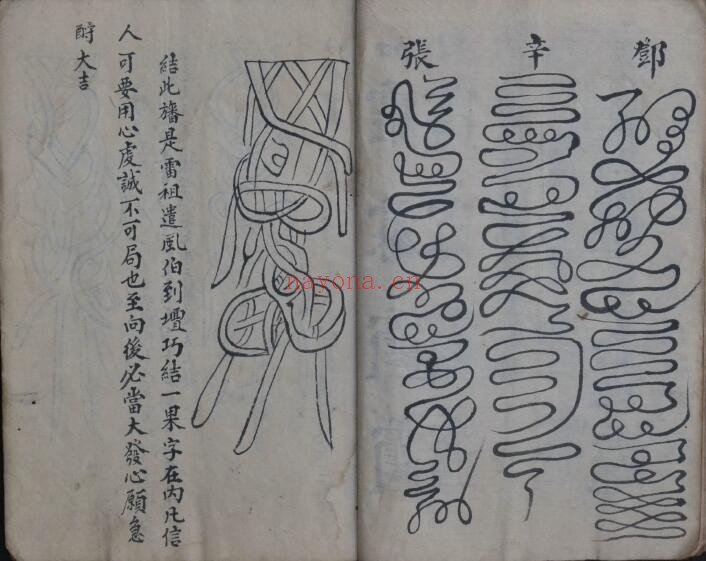 鄧
辛
張
結此旛是雷祖遣風伯到壇巧結一果字在內凡信
人可要用心虔誠不可局也至向後必當大發心願急
酧大吉
nayona.cn